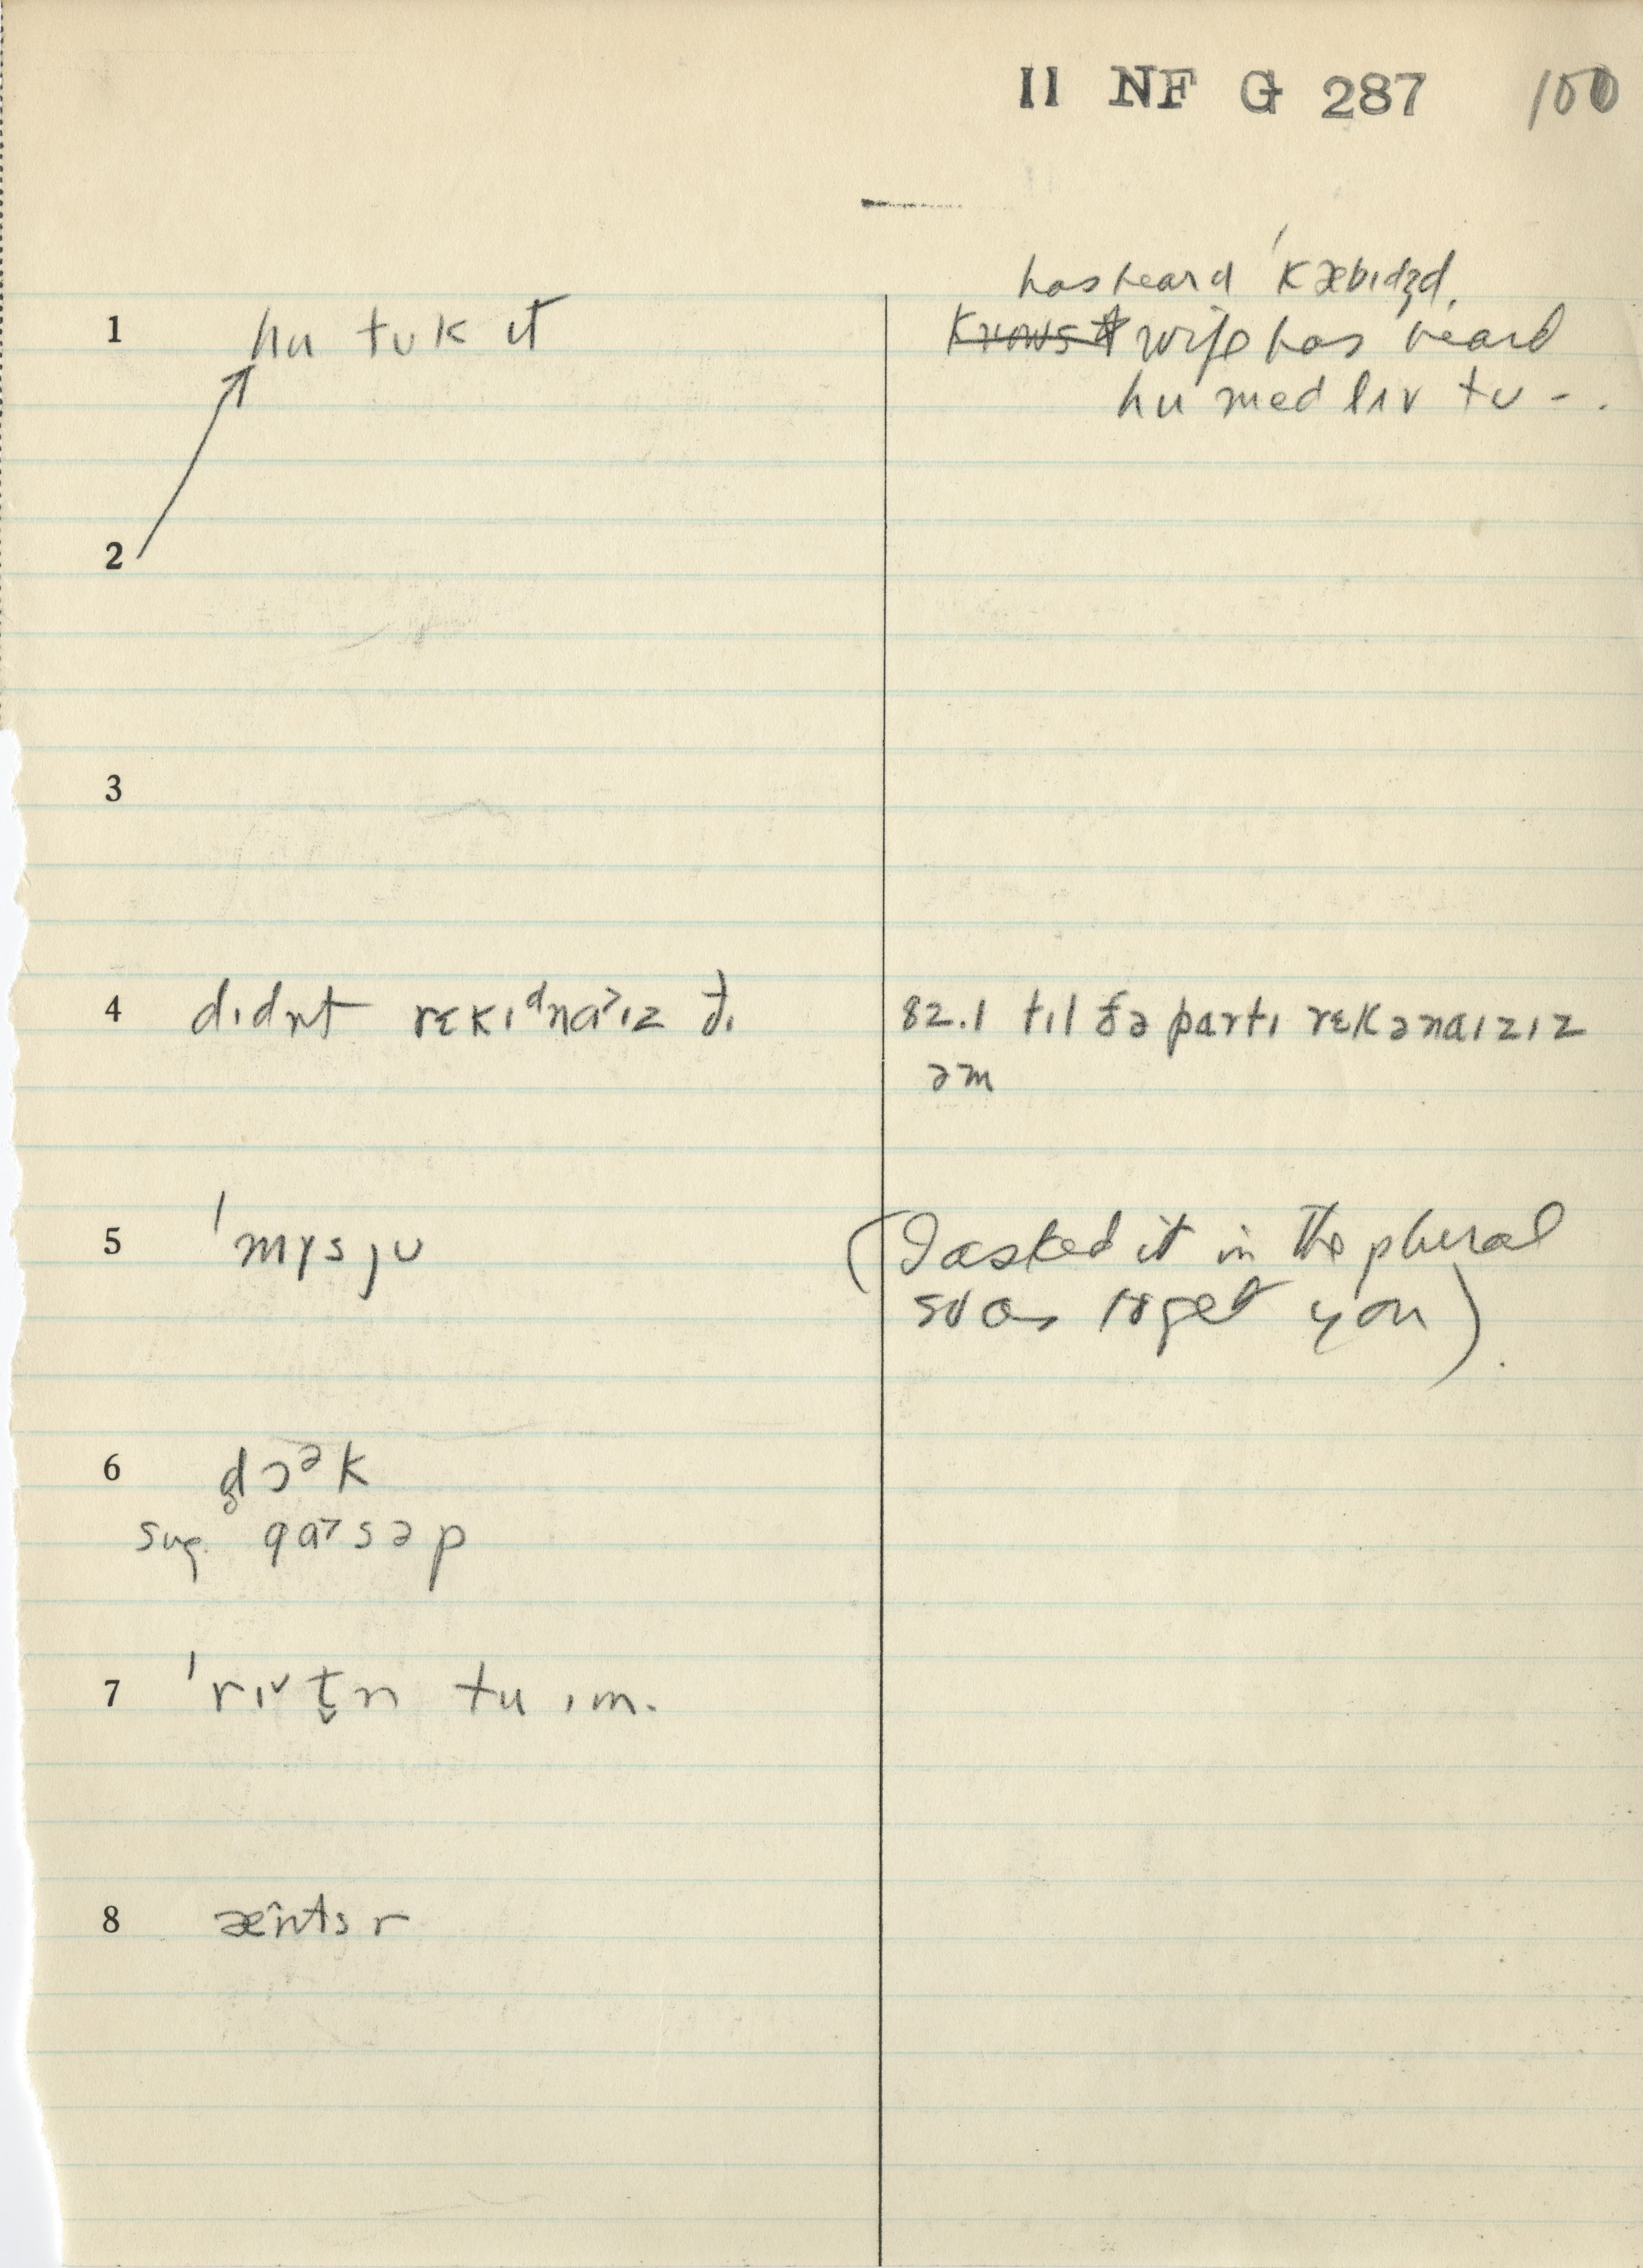 II NF G 287 100
has heard ˈkæbɪdʒd,
1 hu tʊk ɪt
knows it wife has heard
hu med lɪv tʊ - .
2
3
4 dɪdnt rɛkɪᵈna˃ɪz ðɪ 82.1 tɪl ðə partɪ rɛkənaɪzɪz
əm
5 ˈmɪsjʊ (I asked it in the plural
so as to get you).
6 dɔᵊk
sug. gaˑsəp
7 ˈrɪᵛt̬n tu ɪm.
8 æntsr